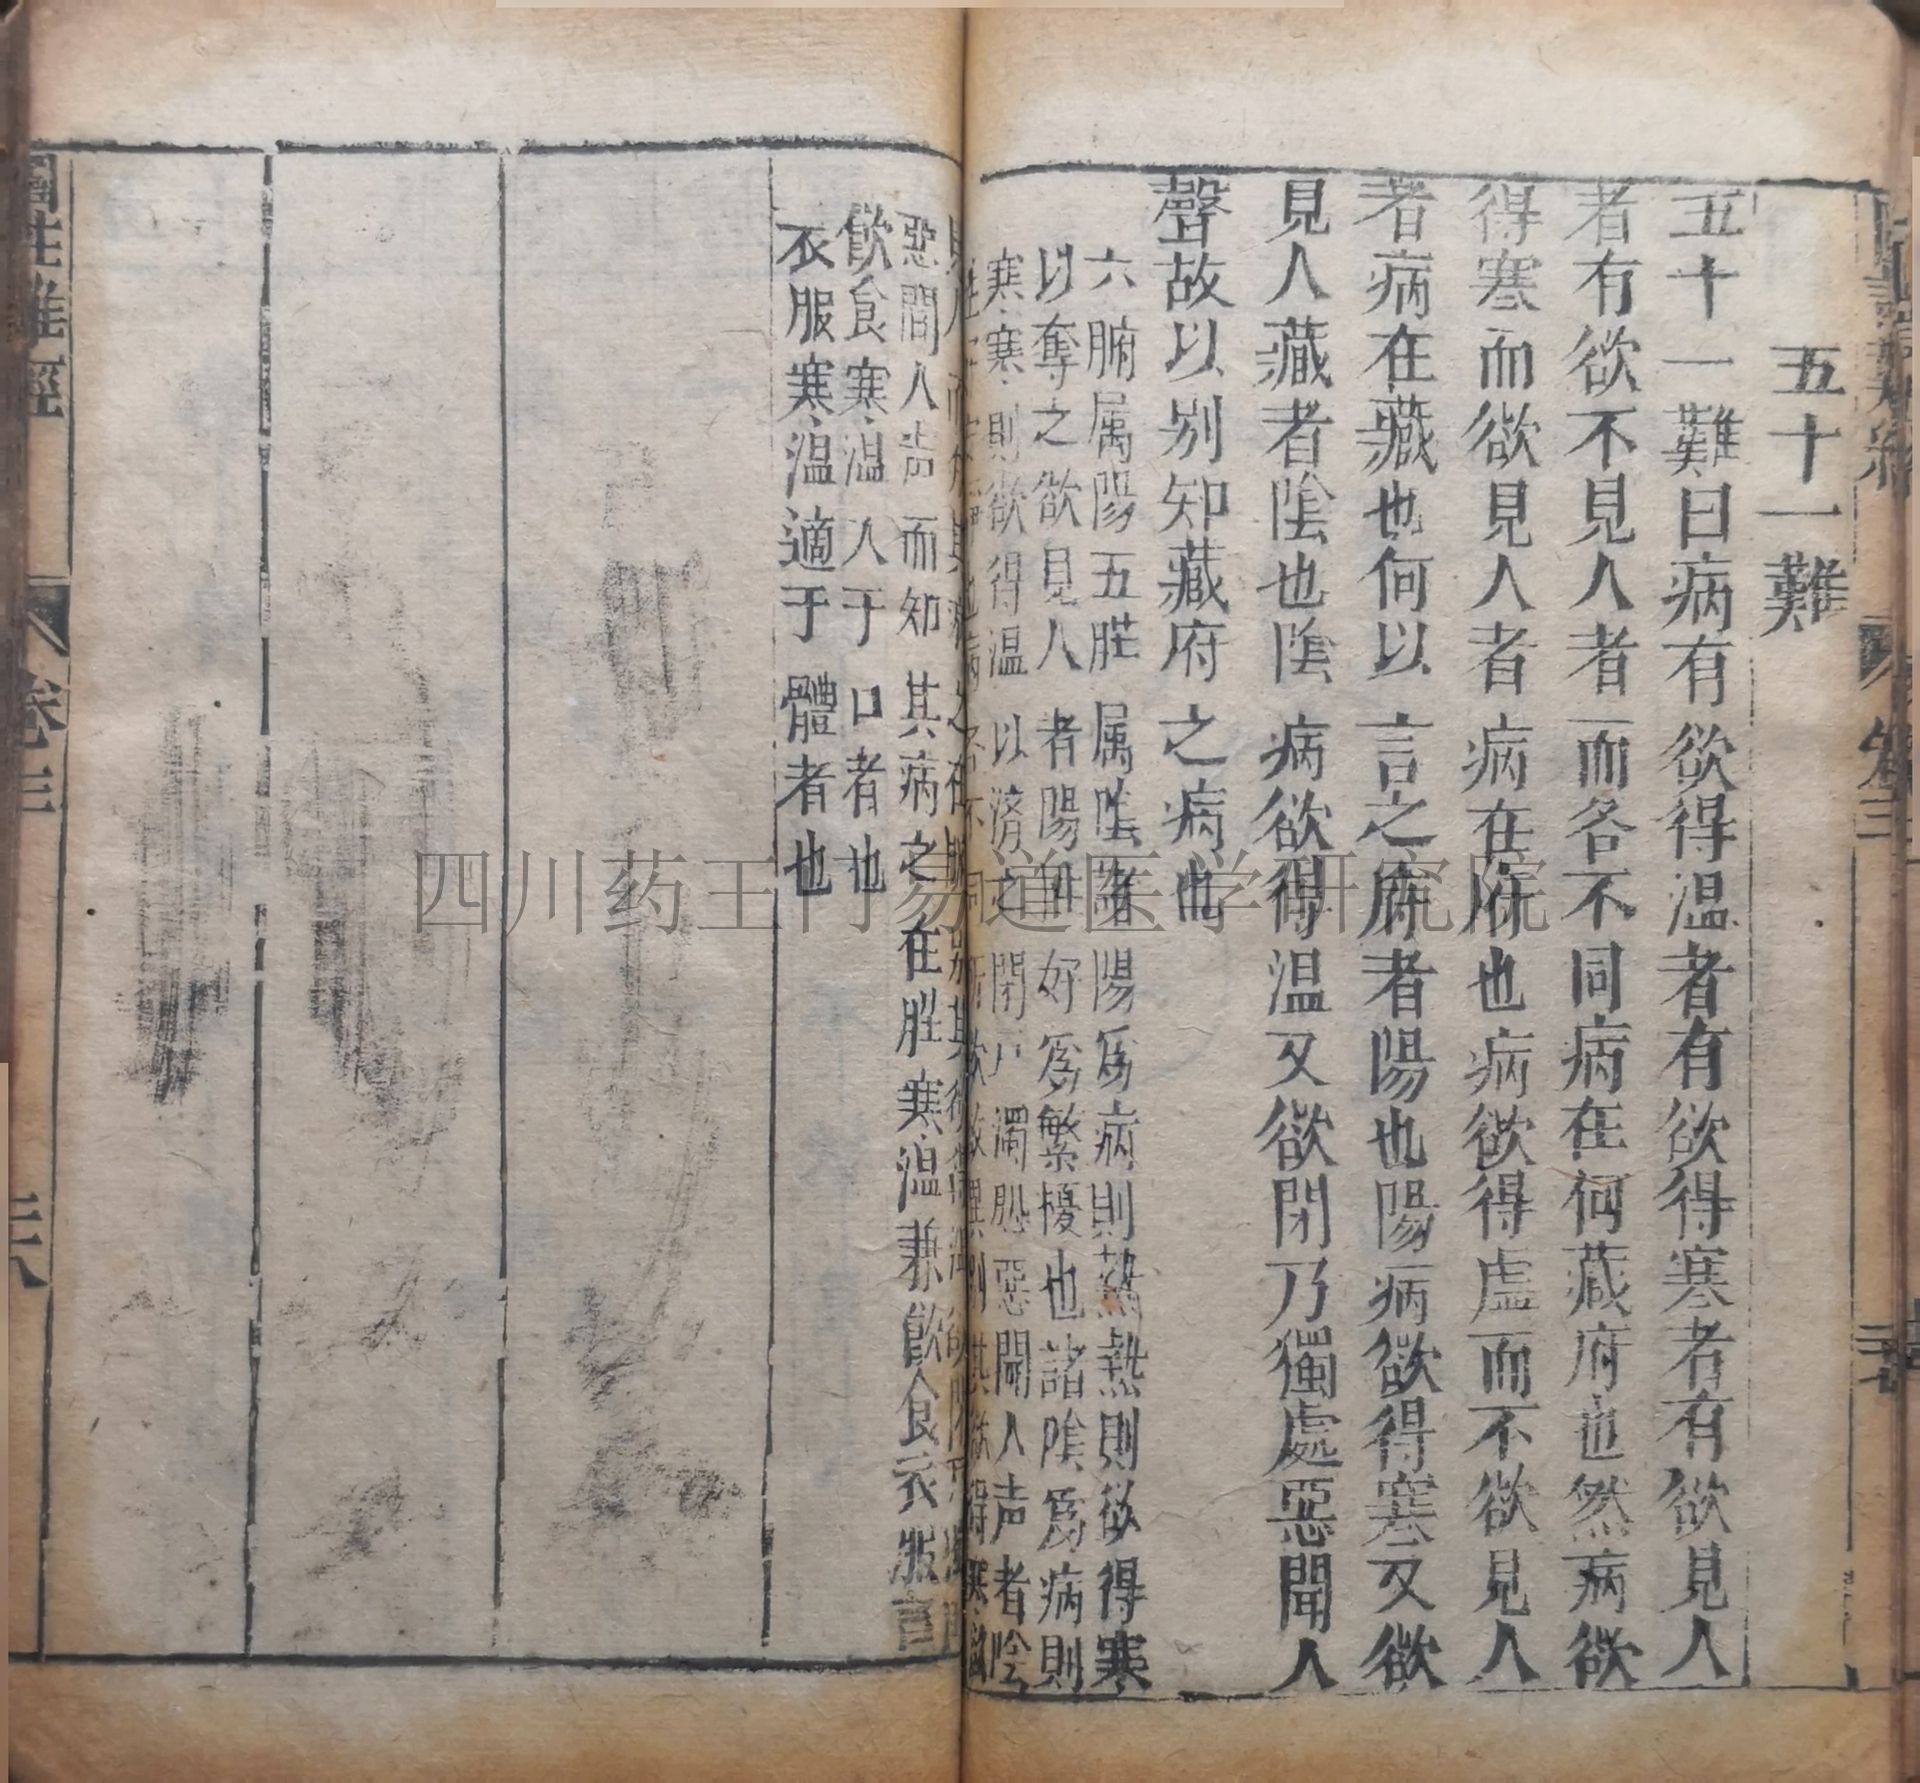 五十一難
五十一難曰病有欲得温者有欲得寒者有欲見人
者有欲不見人者而各不同病在何藏府也然病欲
得寒而欲見人者病在府也病欲得虛而不欲見人
者病在藏也何以言之府者陽也陽病欲得寒又欲
見人藏者陰也陰病欲得温又欲閉乃獨處惡聞人
聲故以别知藏府之病也
六腑属陽五脏属陰諸陽為病則熱熱則欲得寒
以奪之欲見人者陽自好為繁擾也諸陰為病則
寒寒則欲得温以濟之閉戶獨處惡聞人声者陰
病各不同所欲故異别其欲得寒欲
惡聞人声而知其病之在脏寒温兼飲食衣服言
飲食寒温人于口者也
衣服寒温適于體者也
圖註難經
卷三
三六
卷三
四川药王门易道医学研究院